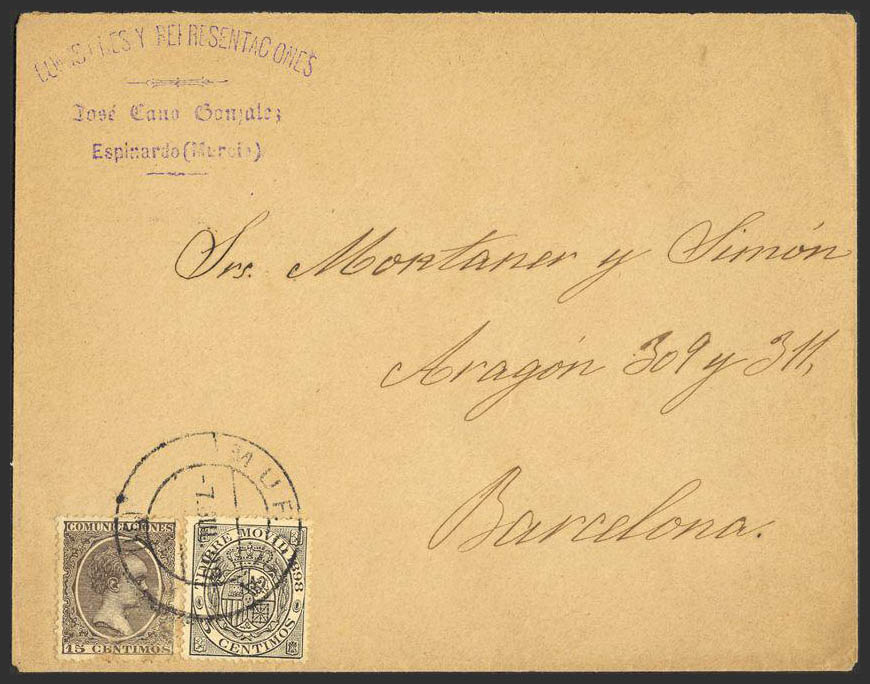 Y REPRESENTACIONES
José Cano Gonzalez
Espinardo (Murcia)
Srs. Montaner y Simón
Aragón 309 y 311,
Barcelona.
MUR
COMUNICACIONES
15 CENTIMOS
TIMBRE MOVIL 1898
5 CENTIMOS